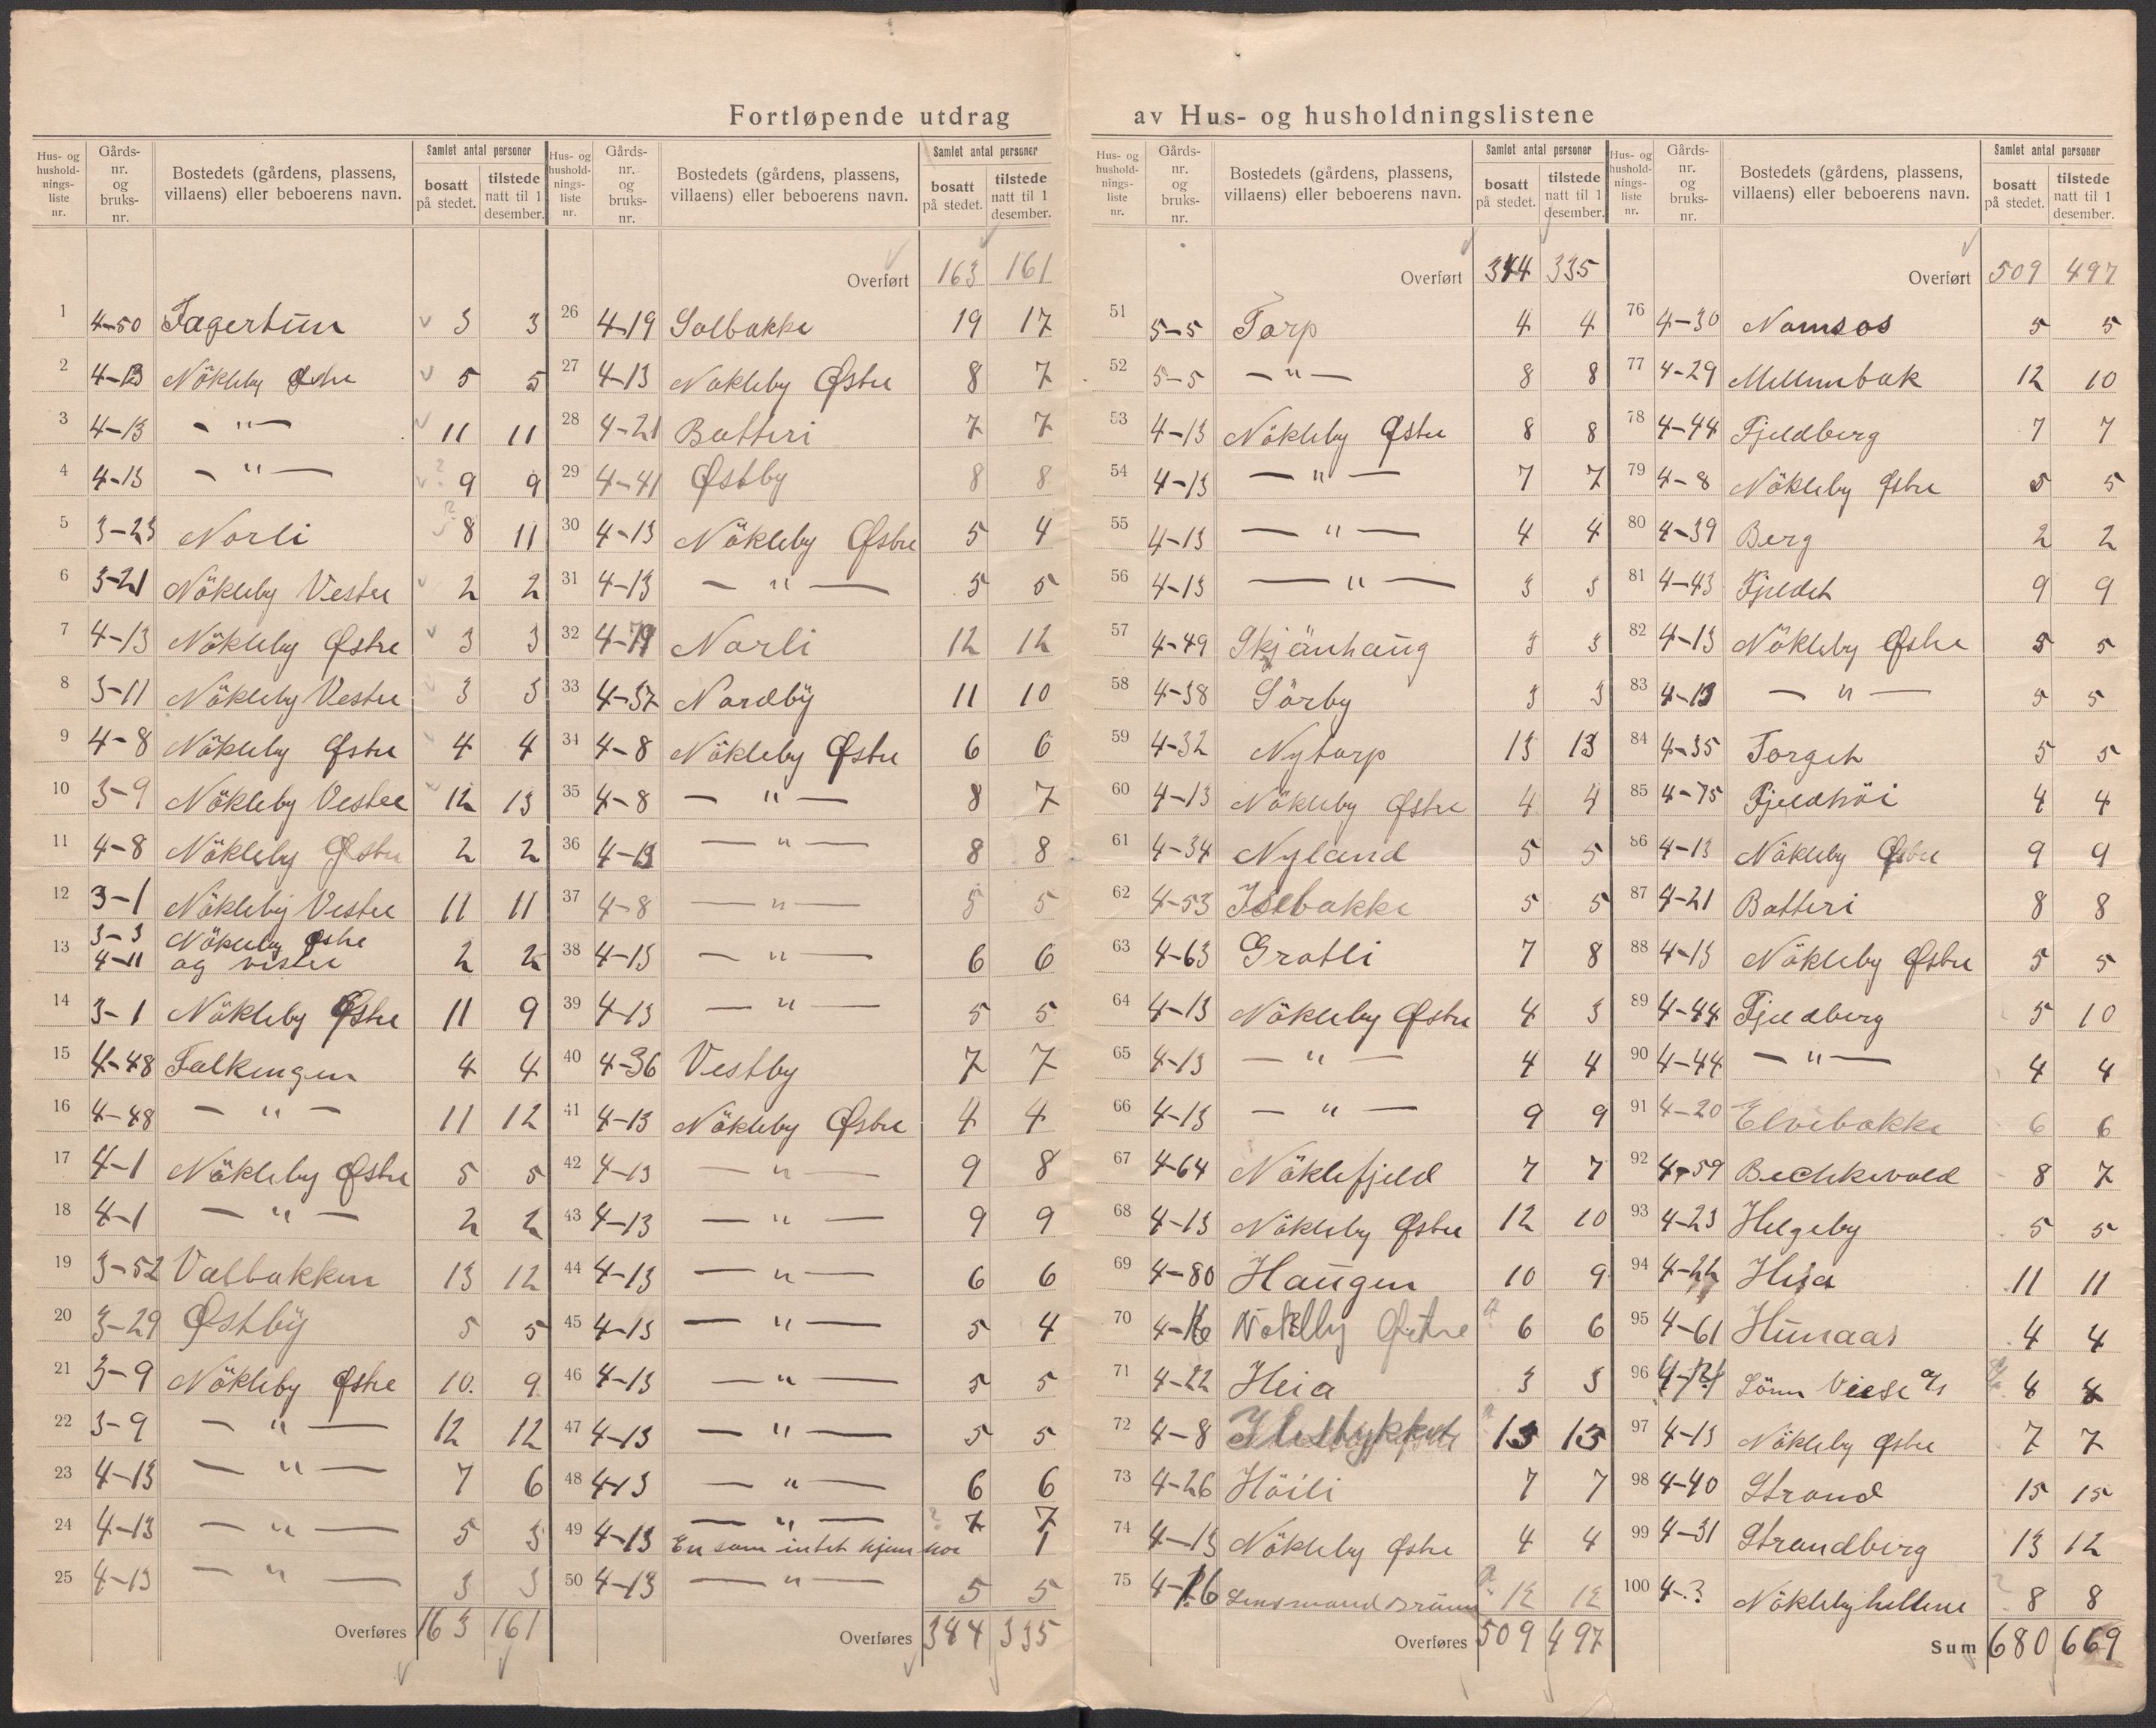 Fortløpende utdrag av Hus- og husholdningslistene
Hus- og hushold-nings-liste nr. | Gårds-nr. og bruks-nr. | Bostedets (gårdens, plassens, villaens) eller beboerens navn. | Samlet antal personer | bosatt på stedet. | tilstede natt til 1 desember.
1 4-50 Fagertun 3 3
2 4-13 Nökleby Østre 5 5
3 4-13 - " - 11 11
4 4-13 - " - 9 9
5 3-23 Norli 8 11
6 3-21 Nökleby Vestre 2 2
7 4-13 Nökleby Østre 3 3
8 3-11 Nökleby Vestre 3 3
9 4-8 Nökleby Østre 4 4
10 3-9 Nökleby Vestre 12 13
11 4-8 Nökleby Østre 2 2
12 3-1 Nökleby Vestre 11 11
13 3-3 Nökleby østre
4-11 og vestre 2 2
14 3-1 Nökleby Østre 11 9
15 4-48 Falkungen 4 4
16 4-48 - " - 11 12
17 4-1 Nökleby Østre 5 5
18 4-1 - " - 2 2
19 3-52 Valbakken 13 12
20 3-29 Østby 5 5
21 3-9 Nökleby Østre 10. 9
22 3-9 - " - 12 12
23 4-13 - " - 7 6
24 4-13 - " - 5 3
25 4-13 - " - 3 3
Overføres 163 161
Hus- og hushold-nings-liste nr. | Gårds-nr. og bruks-nr. | Bostedets (gårdens, plassens, villaens) eller beboerens navn. | Samlet antal personer | bosatt på stedet. | tilstede natt til 1 desember.
Overført 163 161
26 4-19 Solbakke 19 17
27 4-13 Nökleby Østre 8 7
28 4-21 Batteri 7 7
29 4-41 Østby 8 8
30 4-13 Nökleby Østre 5 4
31 4-13 - " - 5 5
32 4-79 Norli 12 12
33 4-37 Nordby 11 10
34 4-8 Nökleby Østre 6 6
35 4-8 - " - 8 7
36 4-13 - " - 8 8
37 4-8 - " - 5 5
38 4-13 - " - 6 6
39 4-13 - " - 5 5
40 4-36 Vestby 7 7
41 4-13 Nökleby Østre 4 4
42 4-13 - " - 9 8
43 4-13 - " - 9 9
44 4-13 - " - 6 6
45 4-13 - " - 5 4
46 4-13 - " - 5 5
47 4-13 - " - 5 5
48 4-13 - " - 6 6
49 4-13 - " - ? 7 7
En som intet hjem har 1
50 4-13 - " - 5 5
Overføres 344 335
Hus- og hushold-nings-liste nr. | Gårds-nr. og bruks-nr. | Bostedets (gårdens, plassens, villaens) eller beboerens navn. | Samlet antal personer | bosatt på stedet. | tilstede natt til 1 desember.
Overført 344 335
51 5-5 Torp 4 4
52 5-5 - " - 8 8
53 4-13 Nökleby Østre 8 8
54 4-13 - " - 7 7
55 4-13 - " - 4 4
56 4-13 - " - 3 3
57 4-49 Skjönhaug 3 3
58 4-38 Sörby 3 3
59 4-32 Nytorp 13 13
60 4-13 Nökleby Østre 4 4
61 4-34 Nyland 5 5
62 4-53 Isebakke 5 5
63 4-63 Grotli 7 8
64 4-13 Nökleby Østre 4 3
65 4-13 - " - 4 4
66 4-13 - " - 9 9
67 4-64 Nöklefjeld 7 7
68 4-13 Nökleby Østre 12 10
69 4-80 Haugen 10 9
70 4-16 Nökleby Østre 6 6
71 4-22 Heia 3 3
72 4-8 13 13
73 4-26 Höili 7 7
74 4-13 Nökleby Østre 4 4
75 4-16 Lensmand 12 12
Overføres 509 497
Hus- og hushold-nings-liste nr. | Gårds-nr. og bruks-nr. | Bostedets (gårdens, plassens, villaens) eller beboerens navn. | Samlet antal personer | bosatt på stedet. | tilstede natt til 1 desember.
Overført 509 497
76 4-30 Namsos 5 5
77 4-29 Mellumbak 12 10
78 4-44 Fjeldberg 7 7
79 4-8 Nökleby Østre 5 5
80 4-39 Berg 2 2
81 4-43 Fjeldet 9 9
82 4-13 Nökleby Østre 5 5
83 4-13 - " - 5 5
84 4-35 Torget 5 5
85 4-75 Fjeldhöi 4 4
86 4-13 Nökleby Østre 9 9
87 4-21 Batteri 8 8
88 4-13 Nökleby Østre 5 5
89 4-44 Fjeldberg 5 10
90 4-44 - " - 4 4
91 4-20 Elvebakke 6 6
92 4-59 Bechkevold 8 7
93 4-23 Helgeby 5 5
94 4-22 Heia 11 11
95 4-61 Furuaas 4 4
96 Sönn Viese a/s 4 4
97 4-13 Nökleby østre 7 7
98 4-40 Strand 15 15
99 4-31 Strandberg 13 12
100 4-? Nöklebyhellene 8 8
Sum 680 669